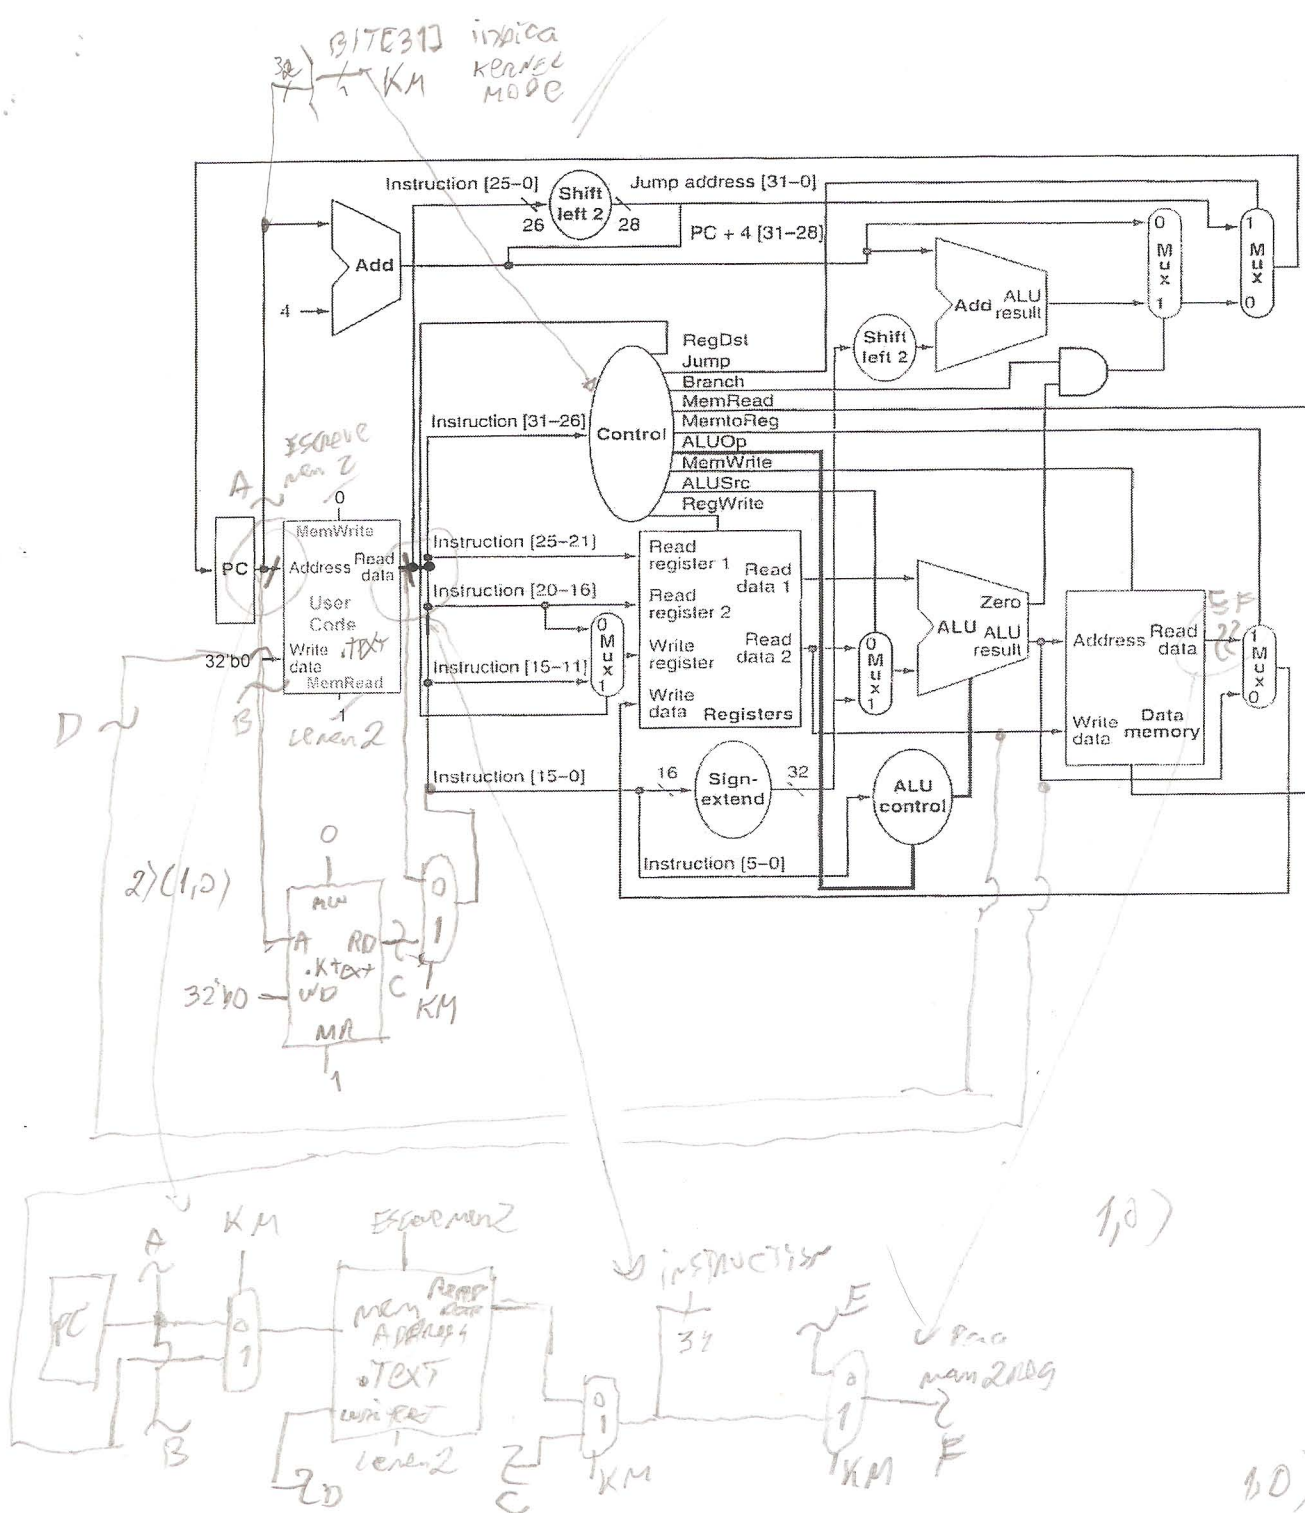 BIT[31] indica
KERNEL
MODE
32
1
KM
Instruction [25–0]
Shift
left 2
Jump address [31–0]
26
28
PC + 4 [31–28]
Add
4
0
M
u
x
1
1
M
u
x
0
Add ALU
result
Shift
left 2
RegDst
Jump
Branch
MemRead
MemtoReg
ALUOp
MemWrite
ALUSrc
RegWrite
Instruction [31–26]
Control
ESCREVE
mem 2
A
0
MemWrite
PC
Address
Read
data
User
Code
.TEXT
32'b0
Write
data
MemRead
1
Lemem2
B
D
Instruction [25–21]
Instruction [20–16]
Instruction [15–11]
0
M
u
x
1
Read
register 1
Read
data 1
Read
register 2
Write
register
Read
data 2
Write
data
Registers
0
M
u
x
1
Zero
ALU ALU
result
E F
Address
Read
data
Write
data
Data
memory
1
M
u
x
0
Instruction [15–0]
16
Sign-
extend
32
ALU
control
Instruction [5–0]
2) (1,0)
0
MW
A RD
.Ktext
WD
MR
32'b0
1
C
0
1
KM
1,0)
KM
A
PC
0
1
B
Escreve Mem2
Read
data
mem
ADDRESS
.TEXT
Lemem2
D
C
0
1
KM
INSTRUCTION
E
0
1
KM
F
Para
mem2Reg
1,0)